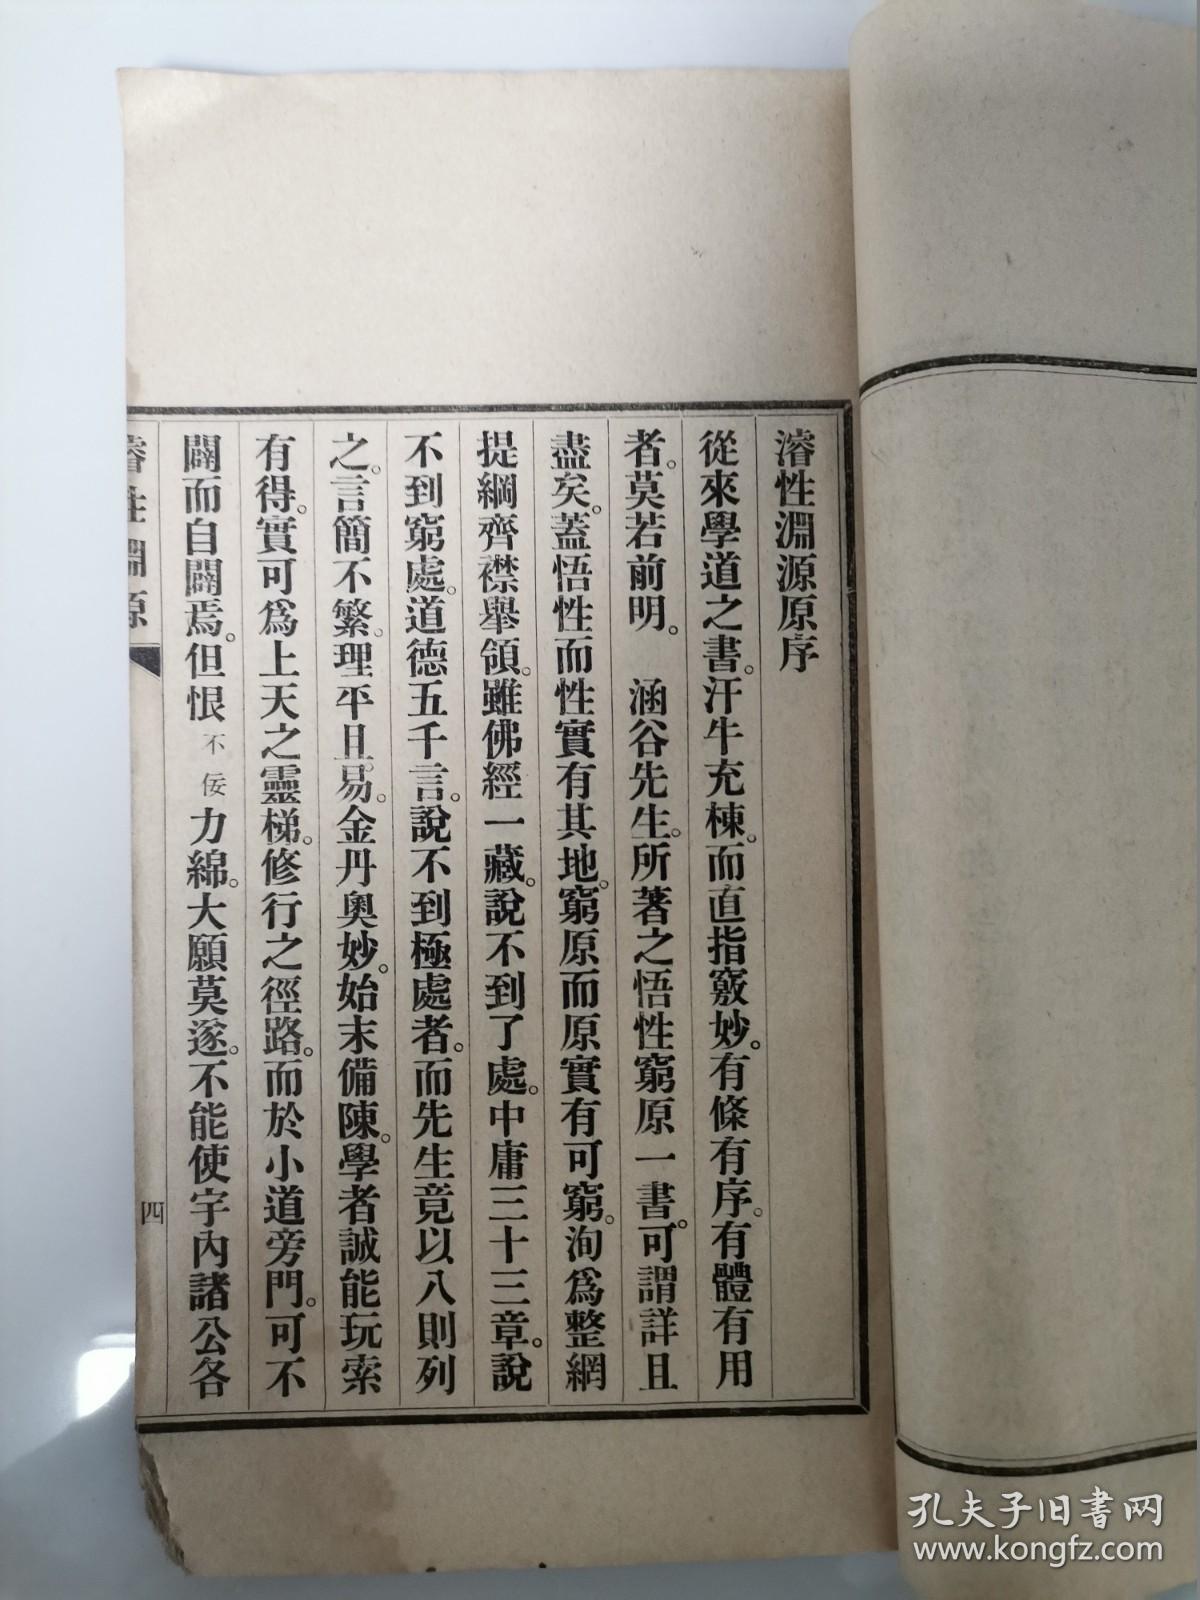 濬性淵源原序
從來學道之書。汗牛充棟。而直指竅妙。有條有序。有體有用
者。莫若前明。　涵谷先生。所著之悟性窮原一書。可謂詳且
盡矣。蓋悟性而性實有其地。窮原而原實有可窮。洵爲整網
提綱齊襟舉領。雖佛經一藏。說不到了處。中庸三十三章。說
不到窮處。道德五千言。說不到極處者。而先生竟以八則列
之。言簡不繁。理平且易。金丹奧妙。始末備陳。學者誠能玩索
有得。實可爲上天之靈梯。修行之徑路。而於小道旁門。可不
闢而自闢焉。但恨不佞力綿。大願莫遂。不能使宇內諸公各
濬性淵源
四
孔夫子旧书网
www.kongfz.com